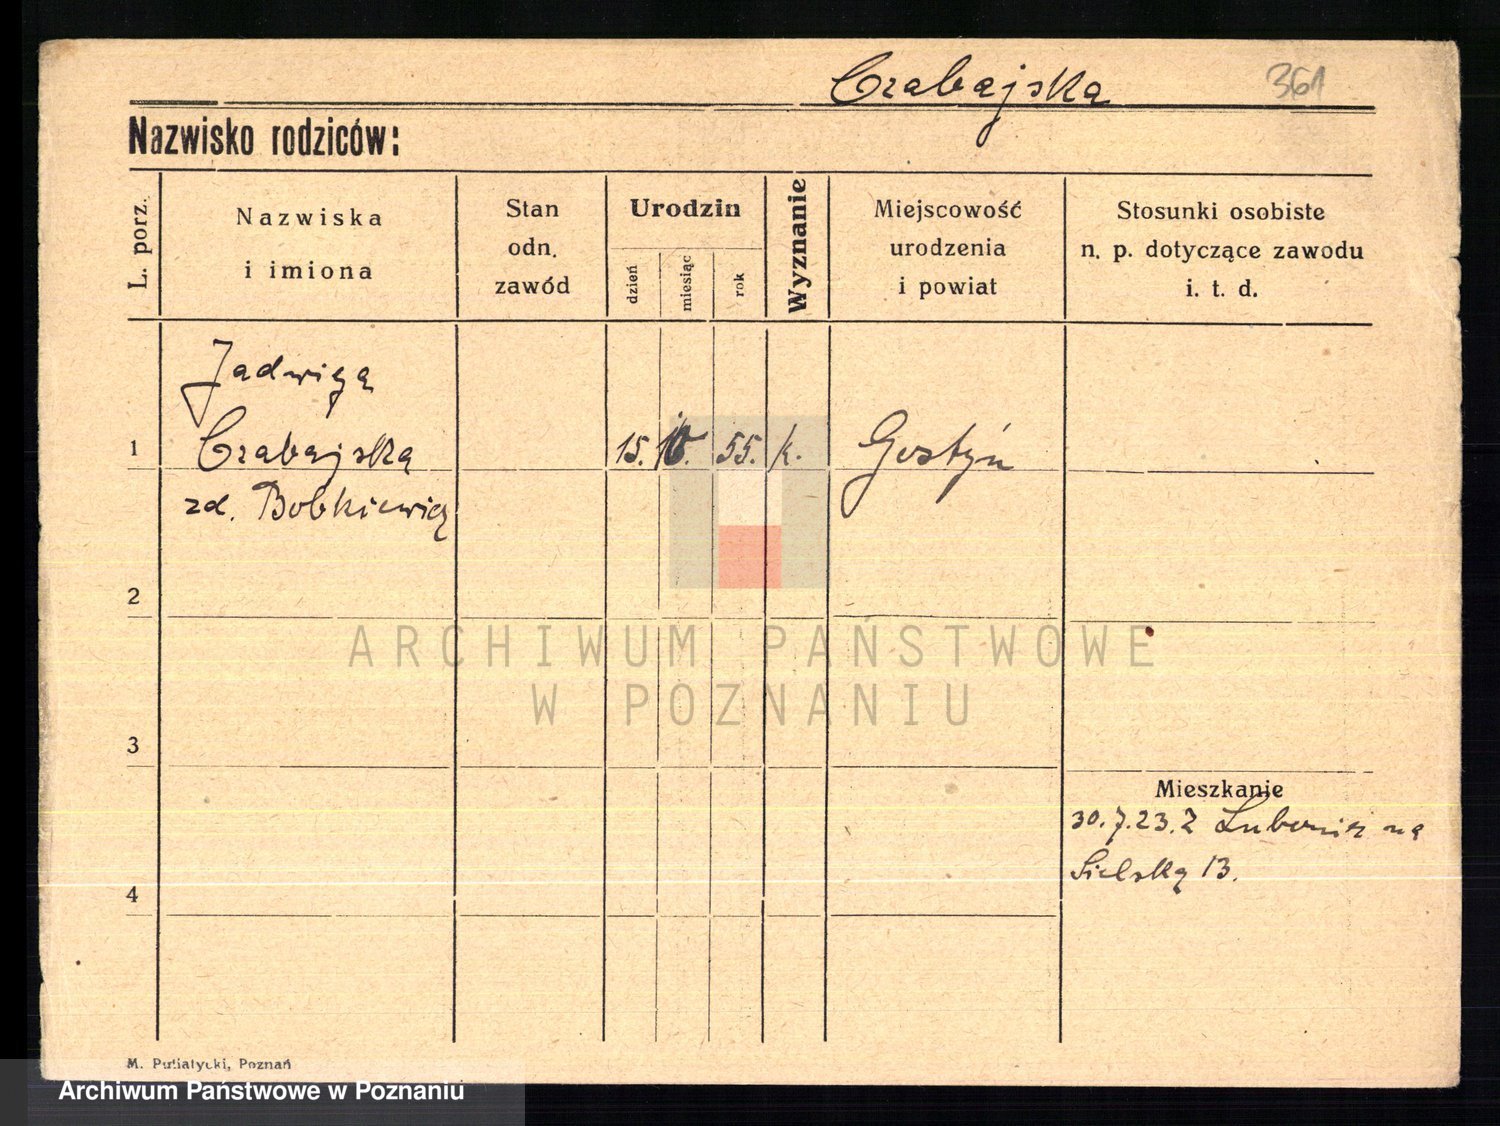 Czabajska 361
Nazwisko rodziców:
L. porz.
Nazwiska
i imiona
Stan
odn.
zawód
Urodzin
dzień
miesiąc
rok
Wyznanie
Miejscowość
urodzenia
i powiat
Stosunki osobiste
n. p. dotyczące zawodu
i. t. d.
Jadwiga
1 Czabajska 15. 10. 55. k. Gostyń
zd. Bobkiewicz
2
ARCHIWUM PAŃSTWOWE
W POZNANIU
3
Mieszkanie
30.7.23. Z na
4 Sielską 13.
M. Putiatycki, Poznań
Archiwum Państwowe w Poznaniu